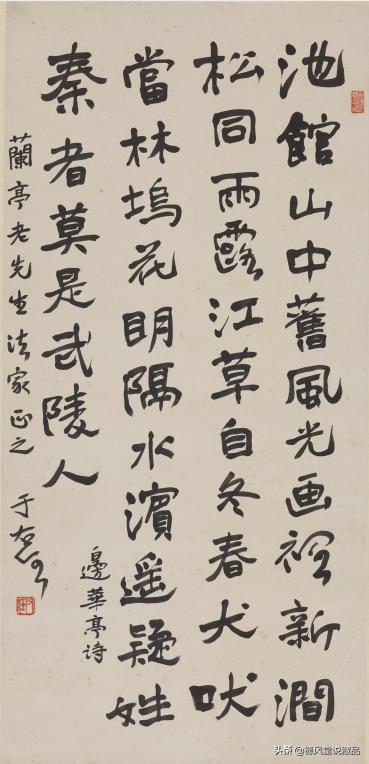 池館山中舊風光画裡新澗
松同雨露江草自冬春犬吠
當林塢花明隔水濱遥疑姓
秦者莫是武陵人
邊華亭诗
蘭亭老先生法家正之 于右任
头条 @德风堂说藏品